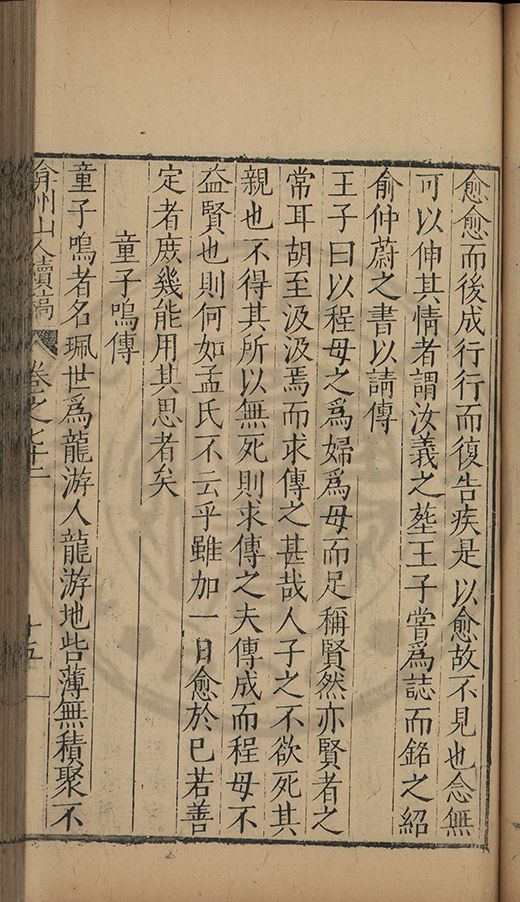 愈愈而後成行行而復告疾是以愈故不見也念無
可以伸其情者謂汝義之塟王子嘗爲誌而銘之紹
俞仲蔚之書以請傳
王子曰以程母之爲婦爲母而足稱賢然亦賢者之
常耳胡至汲汲焉而求傳之甚哉人子之不欲死其
親也不得其所以無死則求傳之夫傳成而程母不
益賢也則何如孟氏不云乎雖加一日愈於已若善
定者庶幾能用其思者矣
童子鳴傳
童子鳴者名珮世爲龍游人龍游地呰薄無積聚不
弇州山人續稿 卷之七十二 十五